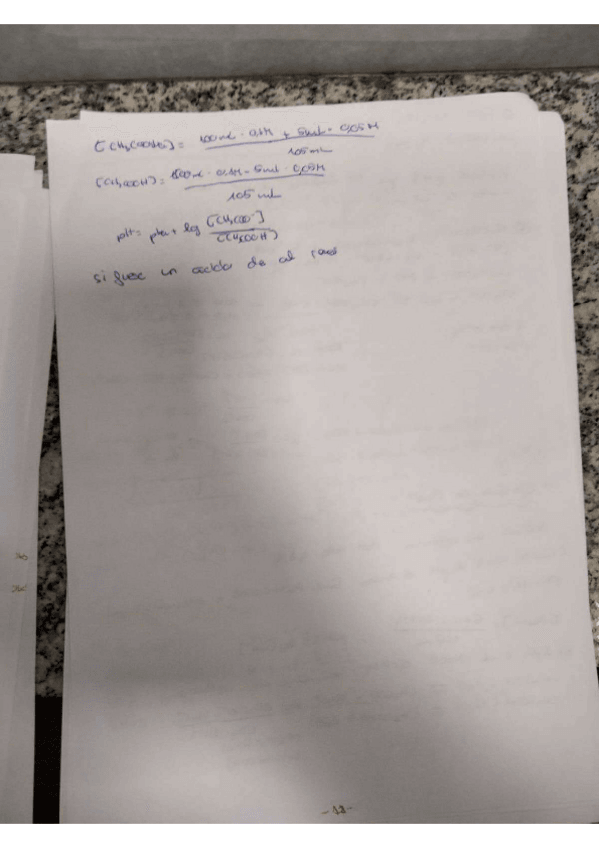 [CH₃COONa] = 100 ml · 0,1M + 5 ml · 0,05M / 105 ml
[CH₃COOH] = 100 ml · 0,1M - 5 ml · 0,05M / 105 ml
pH = pka + log [CH₃COO⁻] / [CH₃COOH]
si fuese un acido da al
- 12 -